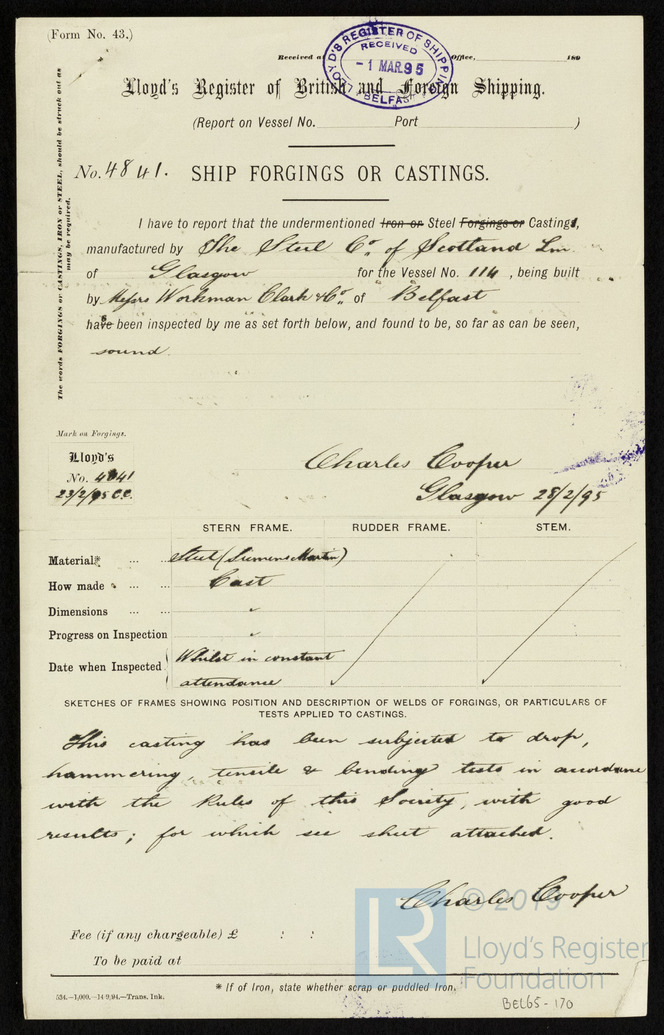 (Form No. 43.)
Received at Office, 189
LLOYD'S REGISTER OF SHIPPING
RECEIVED
-1 MAR. 95
BELFAST
Lloyd's Register of British and Foreign Shipping.
(Report on Vessel No. Port )
The words FORGINGS or CASTINGS, IRON or STEEL, should be struck out as
may be required.
No. 4841. SHIP FORGINGS OR CASTINGS.
I have to report that the undermentioned Iron or Steel Forgings or Castings,
manufactured by The Steel Co. of Scotland Lm
of Glasgow for the Vessel No. 114, being built
by Messrs Workman Clark & Co. of Belfast
has been inspected by me as set forth below, and found to be, so far as can be seen,
sound.
Mark on Forgings.
Lloyd's
No. 4841
23/2/95 C.C.
Charles Cooper
Glasgow 28/2/95
STERN FRAME. RUDDER FRAME. STEM.
Material* ... ... Steel (Siemens Martin)
How made ... ... Cast
Dimensions ... ... "
Progress on Inspection "
Date when Inspected Whilst in constant
attendance
SKETCHES OF FRAMES SHOWING POSITION AND DESCRIPTION OF WELDS OF FORGINGS, OR PARTICULARS OF
TESTS APPLIED TO CASTINGS.
This casting has been subjected to drop,
hammering, tensile & bending tests in accordance
with the Rules of this Society, with good
results; for which see sheet attached.
Charles Cooper
© 2019
LR
Lloyd's Register
Foundation
Fee (if any chargeable) £ : :
To be paid at
* If of Iron, state whether scrap or puddled Iron.
534.—1,000.—14/9/94.—Trans. Ink.
BEL65-170